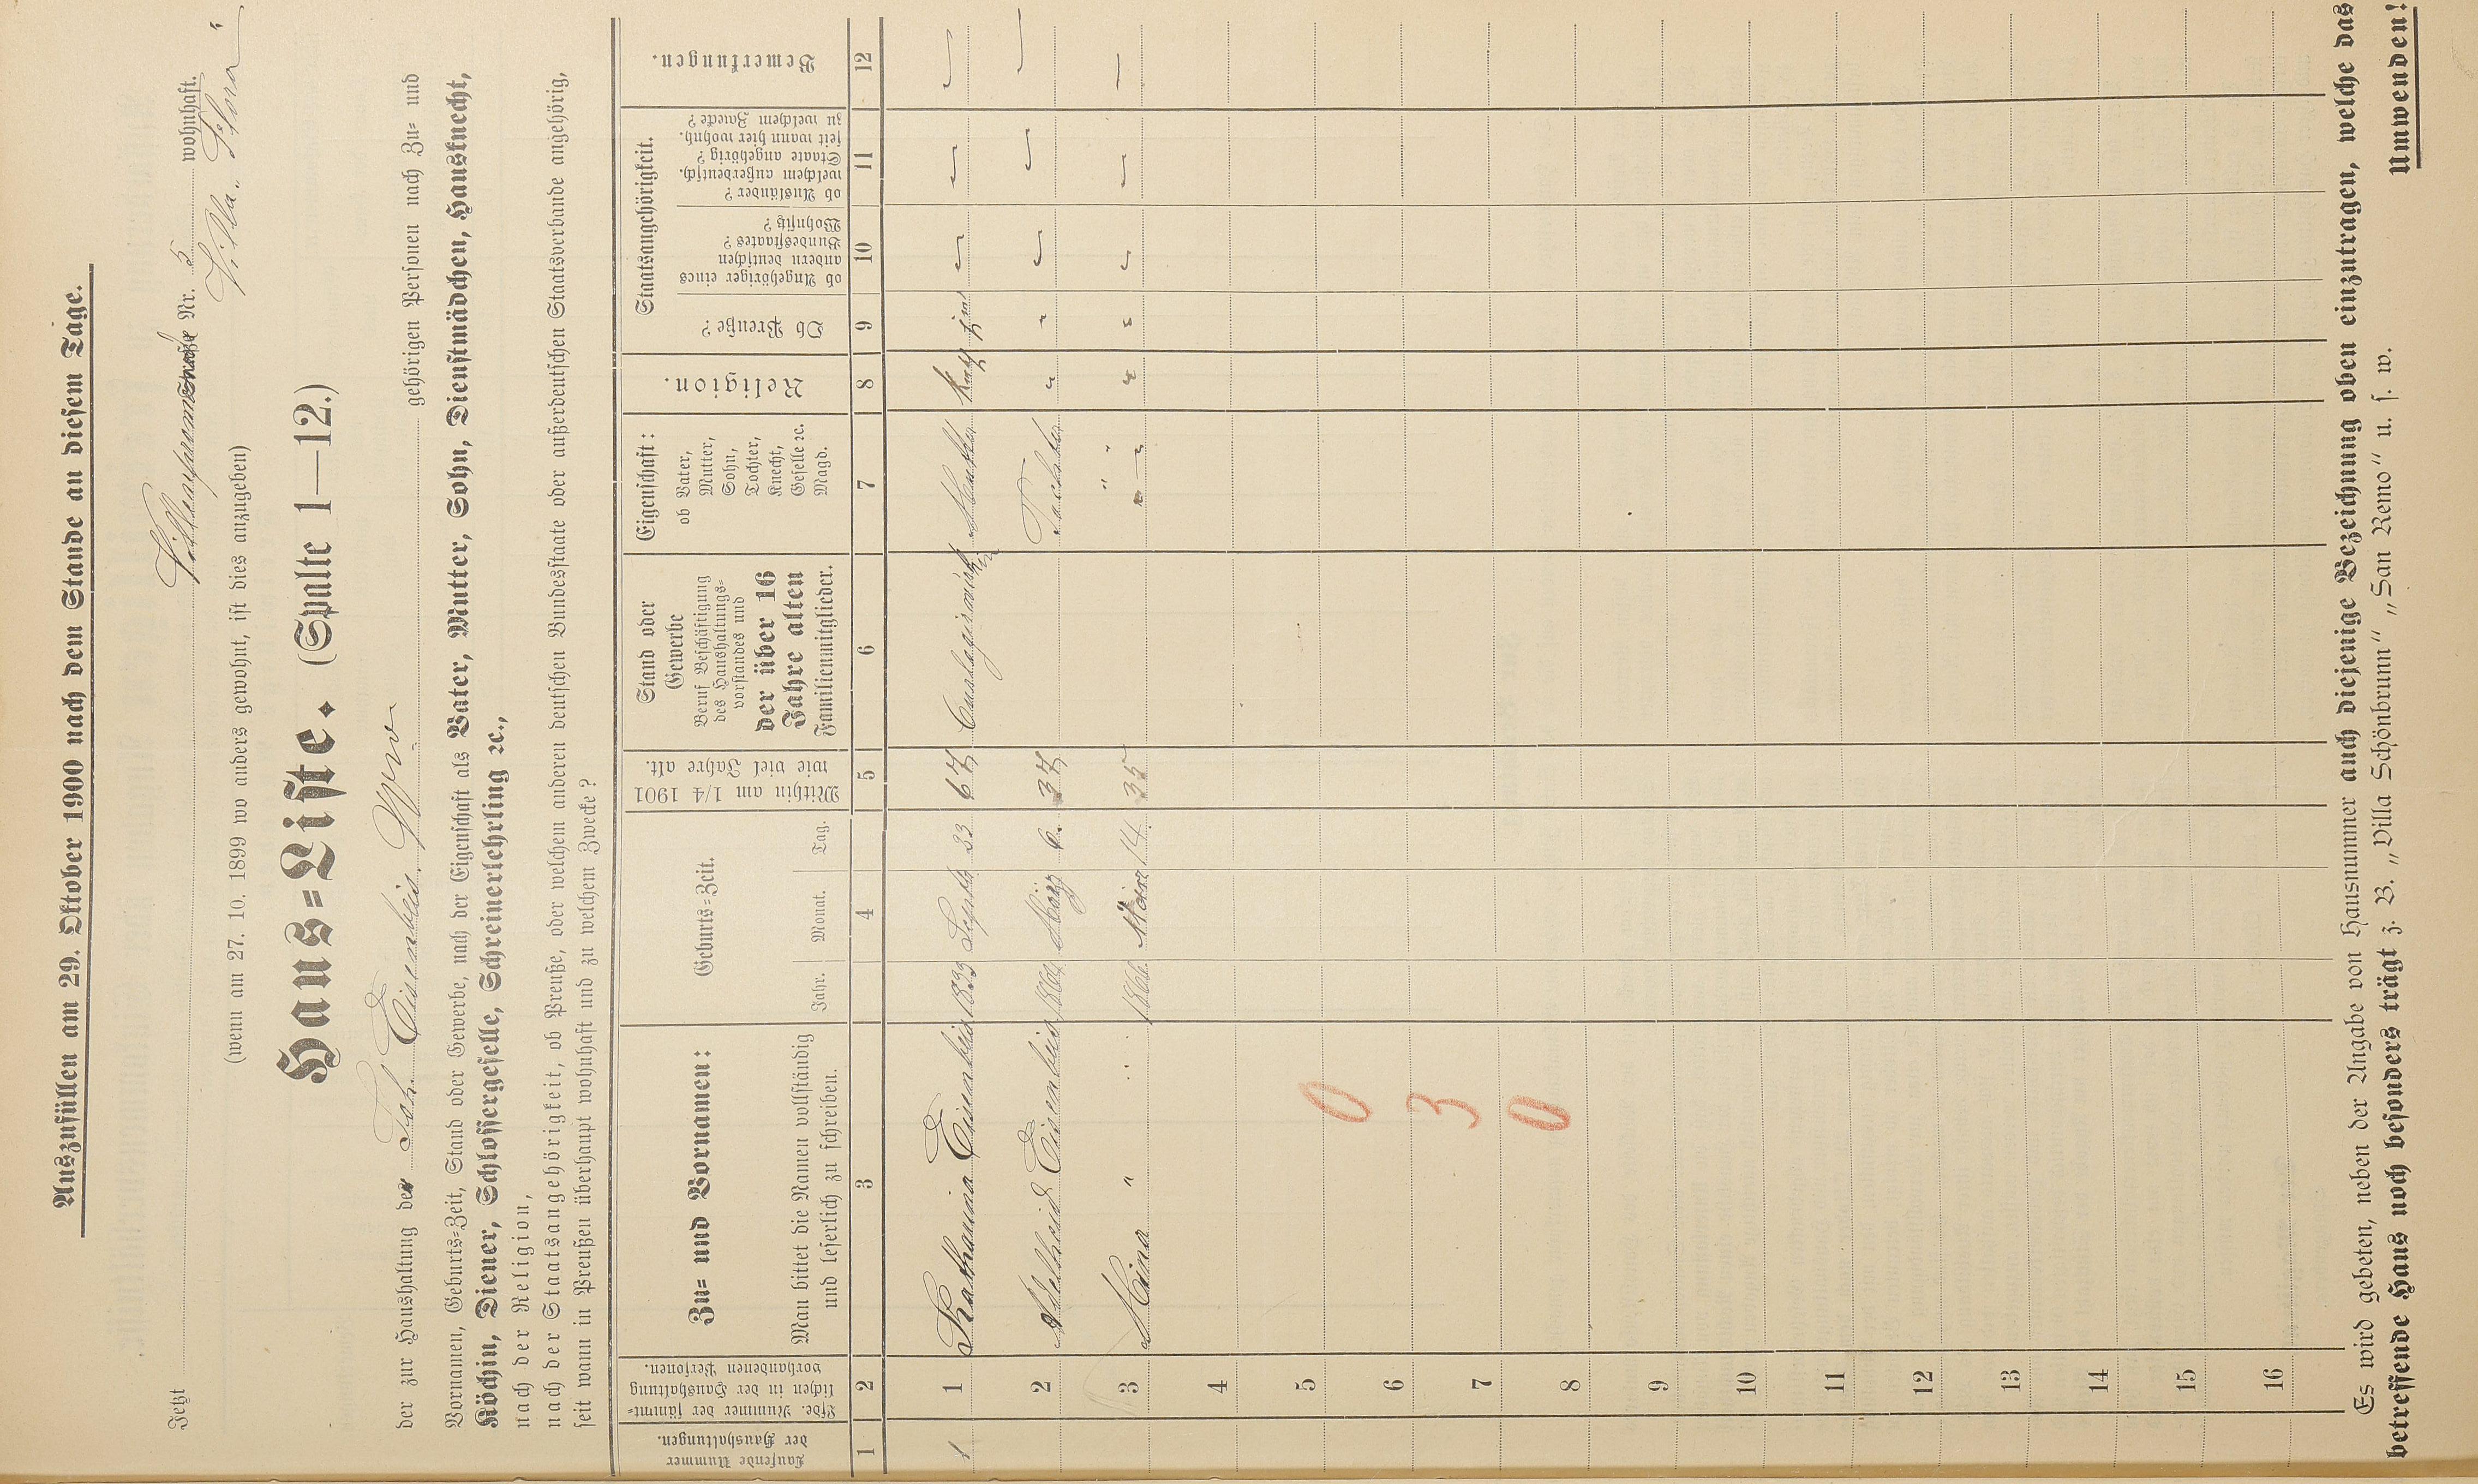 Auszufüllen am 29. Oktober 1900 nach dem Stande an diesem Tage.
Jetzt Villenpromenade straße Nr. 5 wohnhaft.
Villa „Flora“
(wenn am 27. 10. 1899 wo anders gewohnt, ist dies anzugeben)
Haus=Liste. (Spalte 1—12.)
der zur Haushaltung der Joh. Eisenbeis Wwe gehörigen Personen nach Zu= und
Vornamen, Geburts=Zeit, Stand oder Gewerbe, nach der Eigenschaft als Vater, Mutter, Sohn, Dienstmädchen, Hausknecht,
Köchin, Diener, Schlossergeselle, Schreinerlehrling ꝛc.,
nach der Religion,
nach der Staatsangehörigkeit, ob Preuße, oder welchem anderen deutschen Bundesstaate oder außerdeutschen Staatsverbande angehörig,
seit wann in Preußen überhaupt wohnhaft und zu welchem Zwecke?
Laufende Nummer der Haushaltungen.
Lfde. Nummer der sämmt=lichen in der Haushaltung vorhandenen Personen.
Zu= und Vornamen:
Man bittet die Namen vollständig und leserlich zu schreiben.
Geburts=Zeit.
Jahr. Monat. Tag.
Mithin am 1/4 1901 wie viel Jahre alt.
Stand oder Gewerbe
Beruf Beschäftigung des Haushaltungs=vorstandes und der über 16 Jahre alten Familienmitglieder.
Eigenschaft:
ob Vater, Mutter, Sohn, Tochter, Knecht, Geselle ꝛc. Magd.
Religion.
Staatsangehörigkeit.
Ob Preuße?
ob Angehöriger eines andern deutschen Bundesstaates? Wohnsitz?
ob Ausländer? welchem außerdeutsch. Staate angehörig? seit wann hier wohnh. zu welchem Zwecke?
Bemerkungen.
1 2 3 4 5 6 7 8 9 10 11 12
1 1 Katharina Eisenbeis 1833 Septbr 23 67 Mutter Kath — — —
2 Adelheid Eisenbeis 1864 März 6. 37 Tochter " " — — —
3 Mina " 1866 März 14. 35 " " " " — — —
4
5
0
6
3
7
0
8
9
10
11
12
13
14
15
16
Es wird gebeten, neben der Angabe von Hausnummer auch diejenige Bezeichnung oben einzutragen, welche das
betreffende Haus noch besonders trägt z. B. „Villa Schönbrunn“ „San Remo“ u. s. w.
Umwenden!